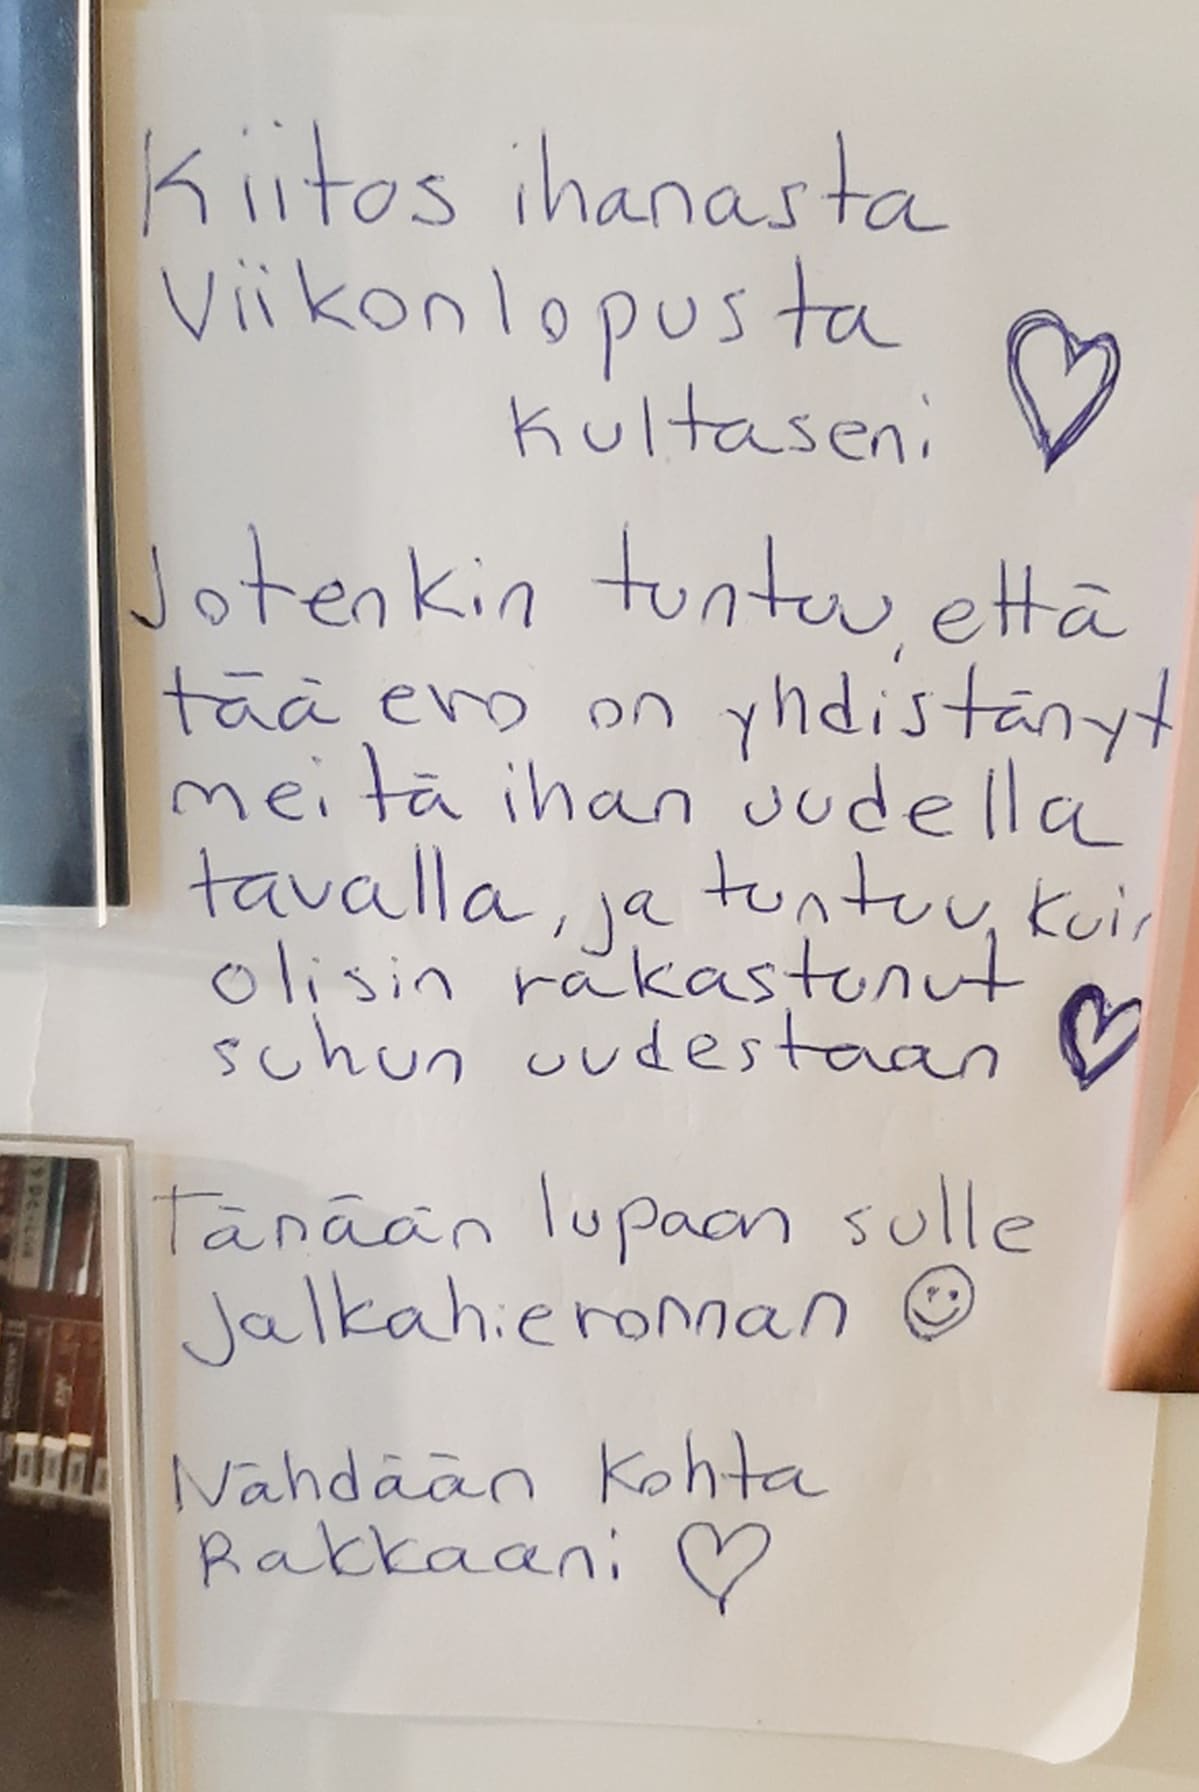 Kiitos ihanasta
Viikonlopusta
Kultaseni
Jotenkin tuntuu, että
tää ero on yhdistänyt
meitä ihan uudella
tavalla, ja tuntuu, kuin
olisin rakastunut
suhun uudestaan
Tänään lupaan sulle
Jalkahieronnan
Nähdään Kohta
Rakkaani